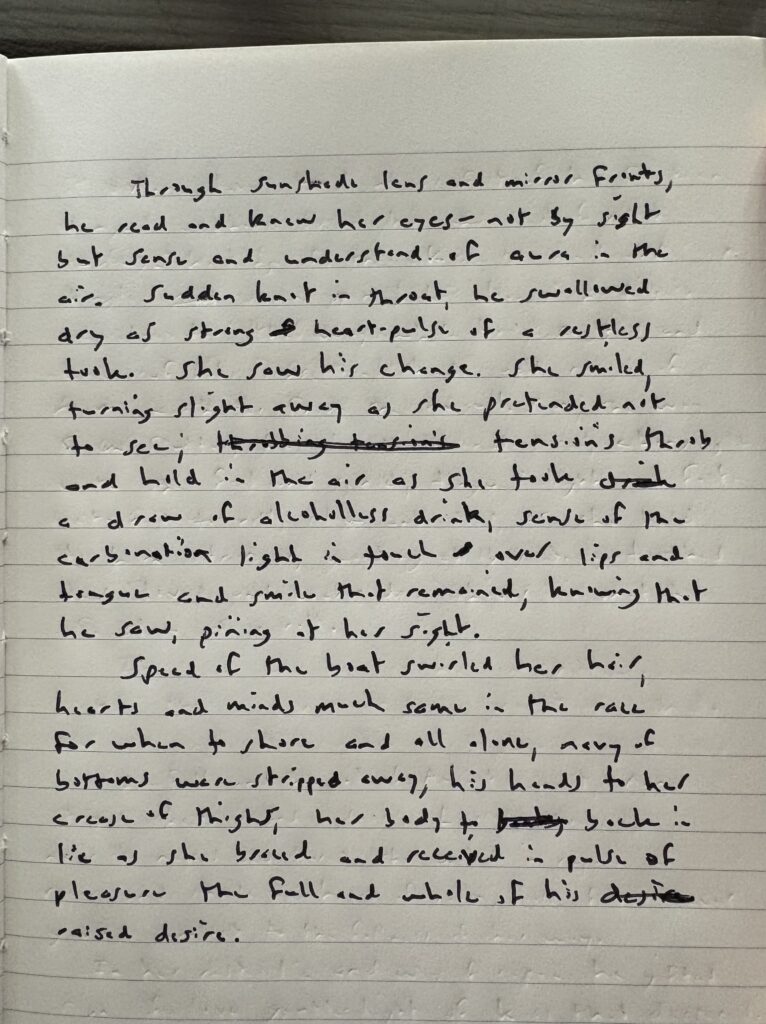 Through sunshade lens and mirror fronts,
he read and knew her eyes - not by sight
but sense and understand of aura in the
air. Sudden knot in throat, he swallowed
dry as strong heart-pulse of a restless
took. She saw his change. She smiled,
turning slight away as she pretended not
to see; throbbing tensions tensions throb
and hold in the air as she took drink
a draw of alcoholless drink, sense of the
carbonation light in touch over lips and
tongue and smile that remained, knowing that
he saw, pining at her sight.
Speed of the boat swirled her hair,
hearts and minds much same in the race
for when to shore and all alone, navy of
bottoms were stripped away, his hands to her
crease of thighs, her body to back in
lie as she braced and received in pulse of
pleasure the full and whole of his desire
raised desire.